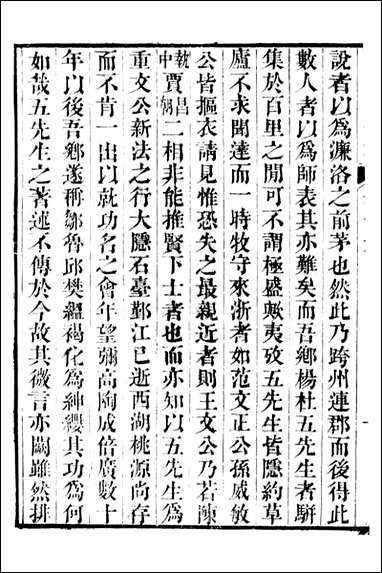 說者以為濂洛之前茅也然此乃跨州連郡而後得此
數人者以為師表其亦難矣而吾鄉楊杜五先生者駢
集於百里之閒可不謂極盛歟夷攷五先生皆隱約草
廬不求聞達而一時牧守來浙者如范文正公孫威敏
公皆摳衣請見惟恐失之最親近者則王文公乃若陳
執中賈昌朝二相非能推賢下士者也而亦知以五先生為
重文公新法之行大隱石臺鄞江已逝西湖桃源尚存
而不肯一出以就功名之會年望彌高陶成倍廣數十
年以後吾鄉遂稱鄒魯邱樊縕褐化為紳纓其功為何
如哉五先生之著述不傳於今故其微言亦闕雖然排